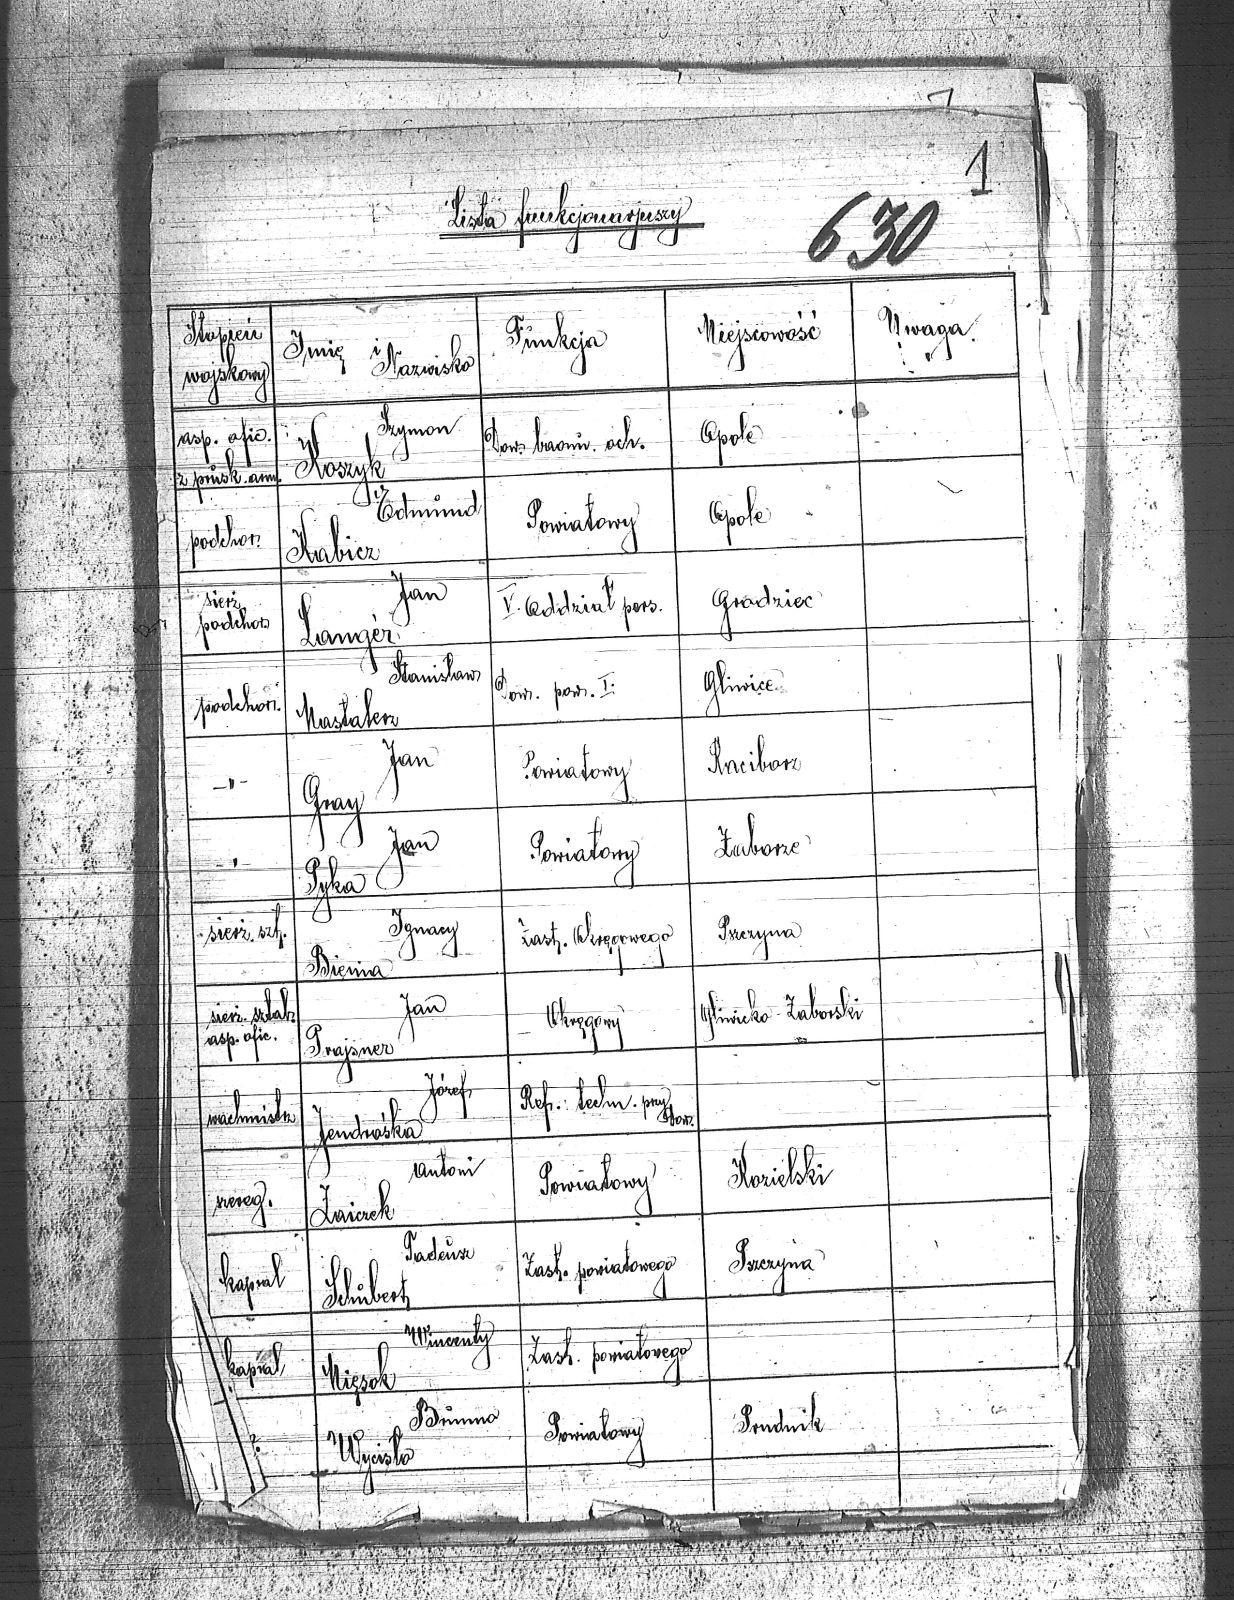 1
Lista funkcjonarjuszy
630
Stopień wojskowy Imię i Nazwisko Funkcja Miejscowość Uwaga
asp. ofic. z prusk. arm. Szymon Koszyk Dow. baonu. och. Opole
podchor. Edmund Kabicz Powiatowy Opole
sierż. podchor. Jan Langer V. Oddział pow. Grodziec
podchor. Stanisław Mastalerz Dow. pow. I. Gliwice
-"- Jan Gray Powiatowy Racibórz
-"- Jan Pyka Powiatowy Zaborze
sierż. szt. Ignacy Bienia Zast. Okręgowego Pszczyna
sierż. sztab. asp. ofic. Jan Prajsner Okręgowy Gliwicko-Zaborski
wachmistrz Józef Jendróska Ref. techn. przy Dow.
szereg. Antoni Zaiczek Powiatowy Kozielski
kapral Tadeusz Schubert Zast. powiatowego Pszczyna
kapral Wincenty Mięsok Zast. powiatowego
? Brunno Wycisło Powiatowy Prudnik